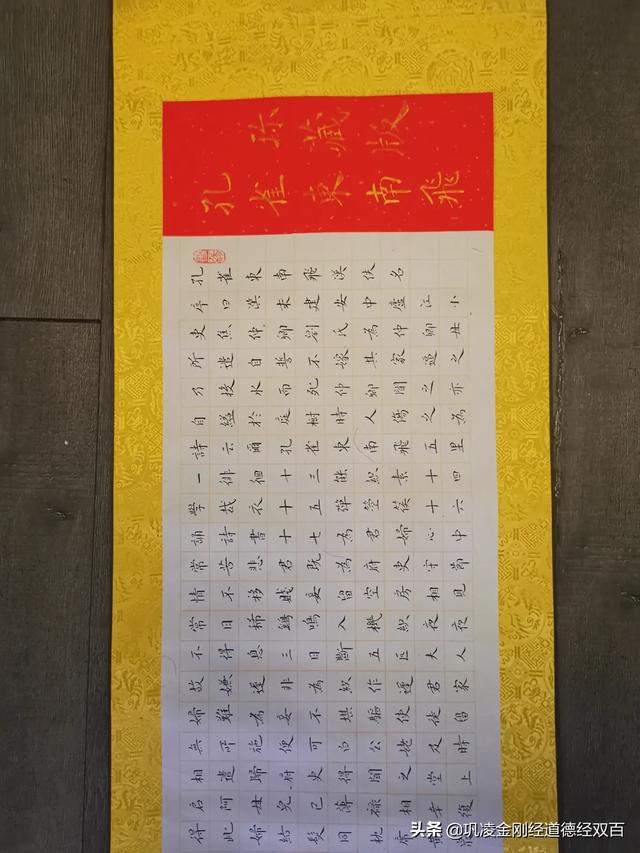 珍藏版
孔雀東南飛
孔雀東南飛漢佚名
序曰漢末建安中廬江小
吏焦仲卿劉氏為仲卿母
所遣自誓不嫁其家逼之
乃投水而死仲卿聞之亦
自縊於庭樹時人傷之為
詩云爾孔雀東南飛五里
一徘徊十三能織素十四
學裁衣十五彈箜篌十六
誦詩書十七為君婦心中
常苦悲君既為府吏守節
情不移賤妾留空房相見
常日稀鷄鳴入機織夜夜
不得息三日斷五匹大人
故嫌遲非為織作遲君家
婦難為妾不堪驅使徒留
無所施便可白公姥及時
相遣歸府吏得聞之堂上
啓阿母兒已薄祿相幸復
得此婦結髮同枕席黃
头条 @巩凌金刚经道德经双百